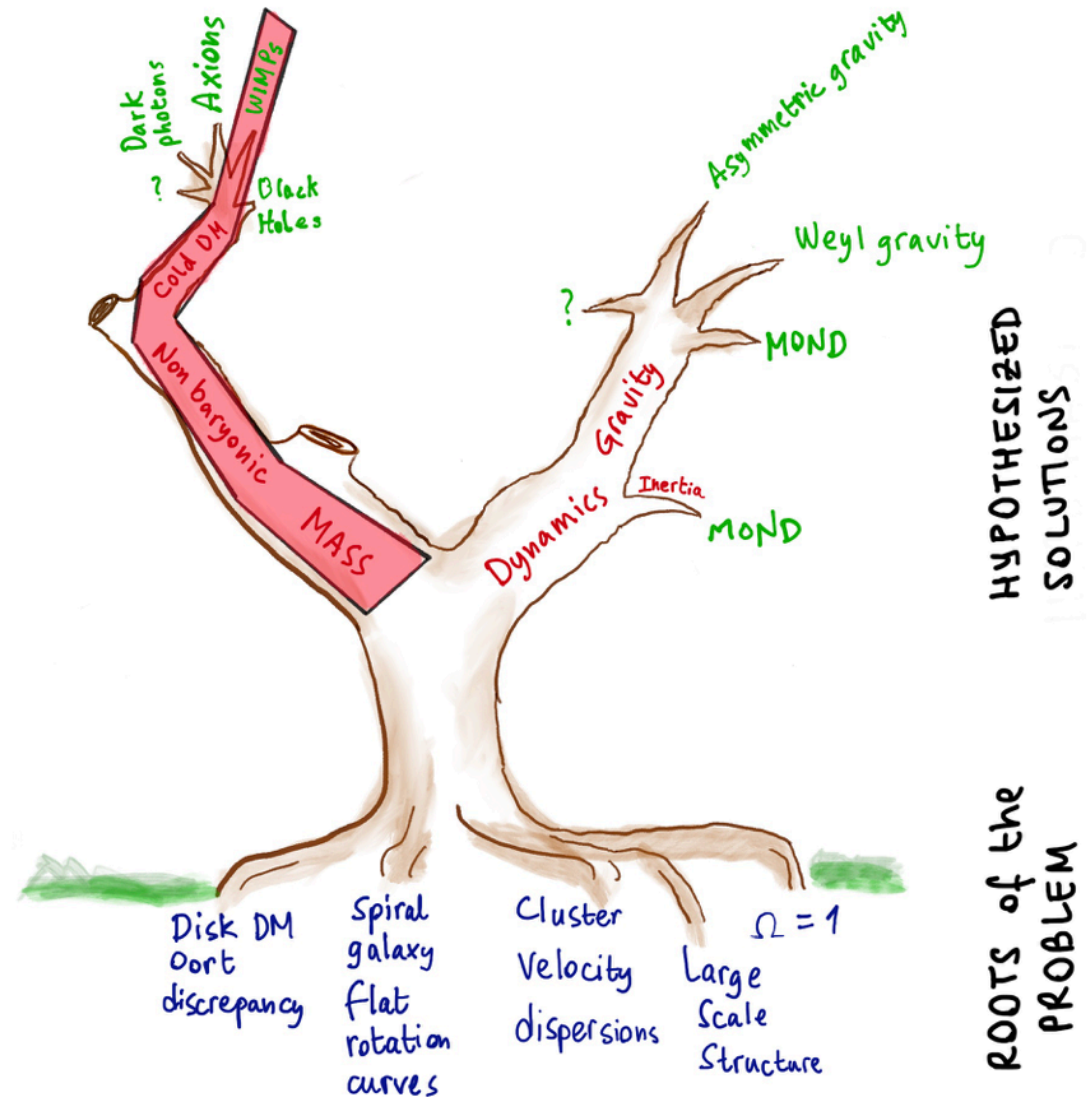 Dark
photons
Axions
WIMPs
?
Black
Holes
Cold DM
Non baryonic
MASS
Asymmetric gravity
Weyl gravity
?
MOND
Gravity
Inertia
MOND
Dynamics
HYPOTHESIZED
SOLUTIONS
Disk DM
Oort
discrepancy
Spiral
galaxy
flat
rotation
curves
Cluster
Velocity
dispersions
Large
Scale
Structure
Ω = 1
ROOTS of the
PROBLEM